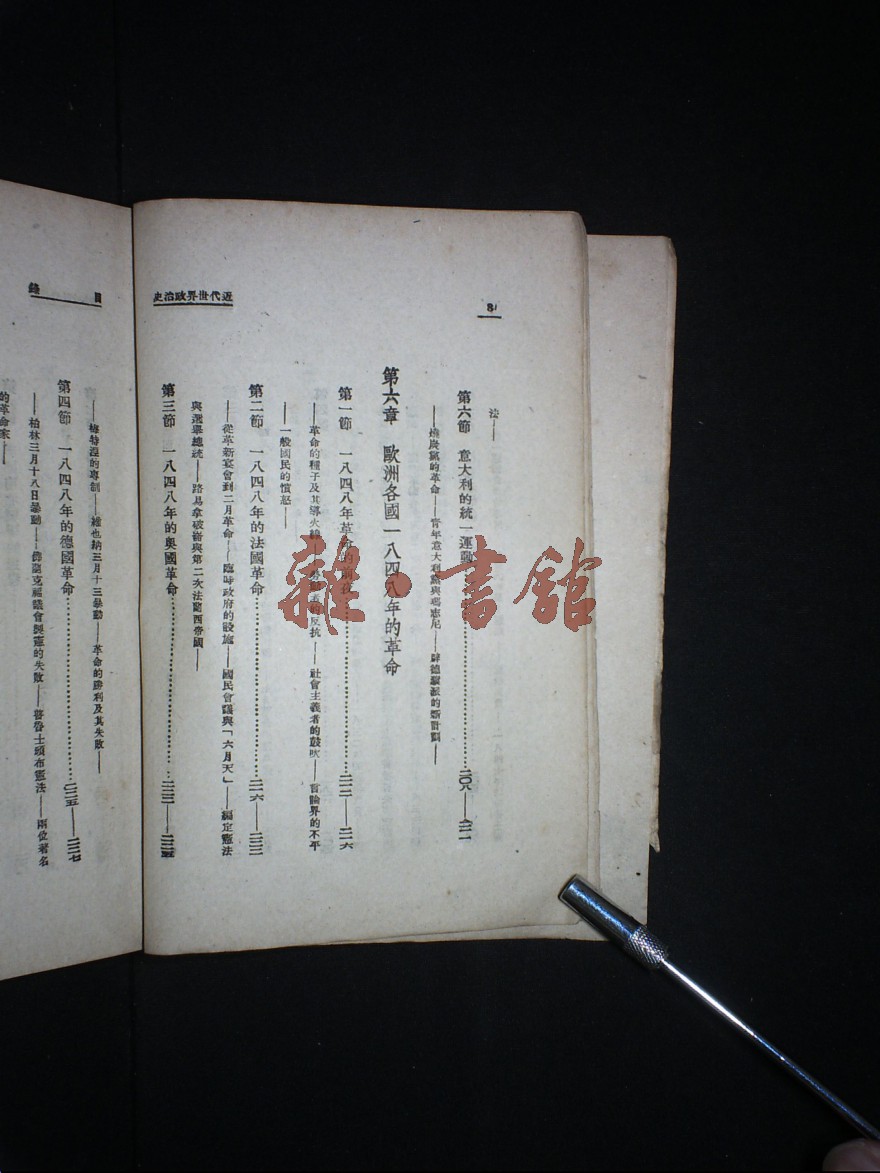 8
近代世界政治史
法——
第六節 意大利的統一運動
——燒炭黨的革命——青年意大利黨與瑪志尼——的新計劃——
二〇八——
第六章 歐洲各國一八四八年的革命
第一節 一八四八年革命的前夜…………二一二——二一六
——革命的種子及其導火線——勞動者的反抗——社會主義者的鼓吹——言論界的不平
——一般國民的憤怒——
第二節 一八四八年的法國革命…………二一六——二二二
——從革新宴會到二月革命——臨時政府的設施——國民會議與「六月天」——編定憲法
與選舉總統——路易拿破崙與第二次法蘭西帝國——
第三節 一八四八年的奧國革命…………二二二——二二五
目錄
——梅特涅的專制——維也納三月十三暴動——革命的勝利及其失敗——
第四節 一八四八年的德國革命…………二二五——二二七
——柏林三月十八日暴動——佛蘭克福議會與憲的失敗——普魯士頒布憲法——兩位著名
的革命家——
雜·書館